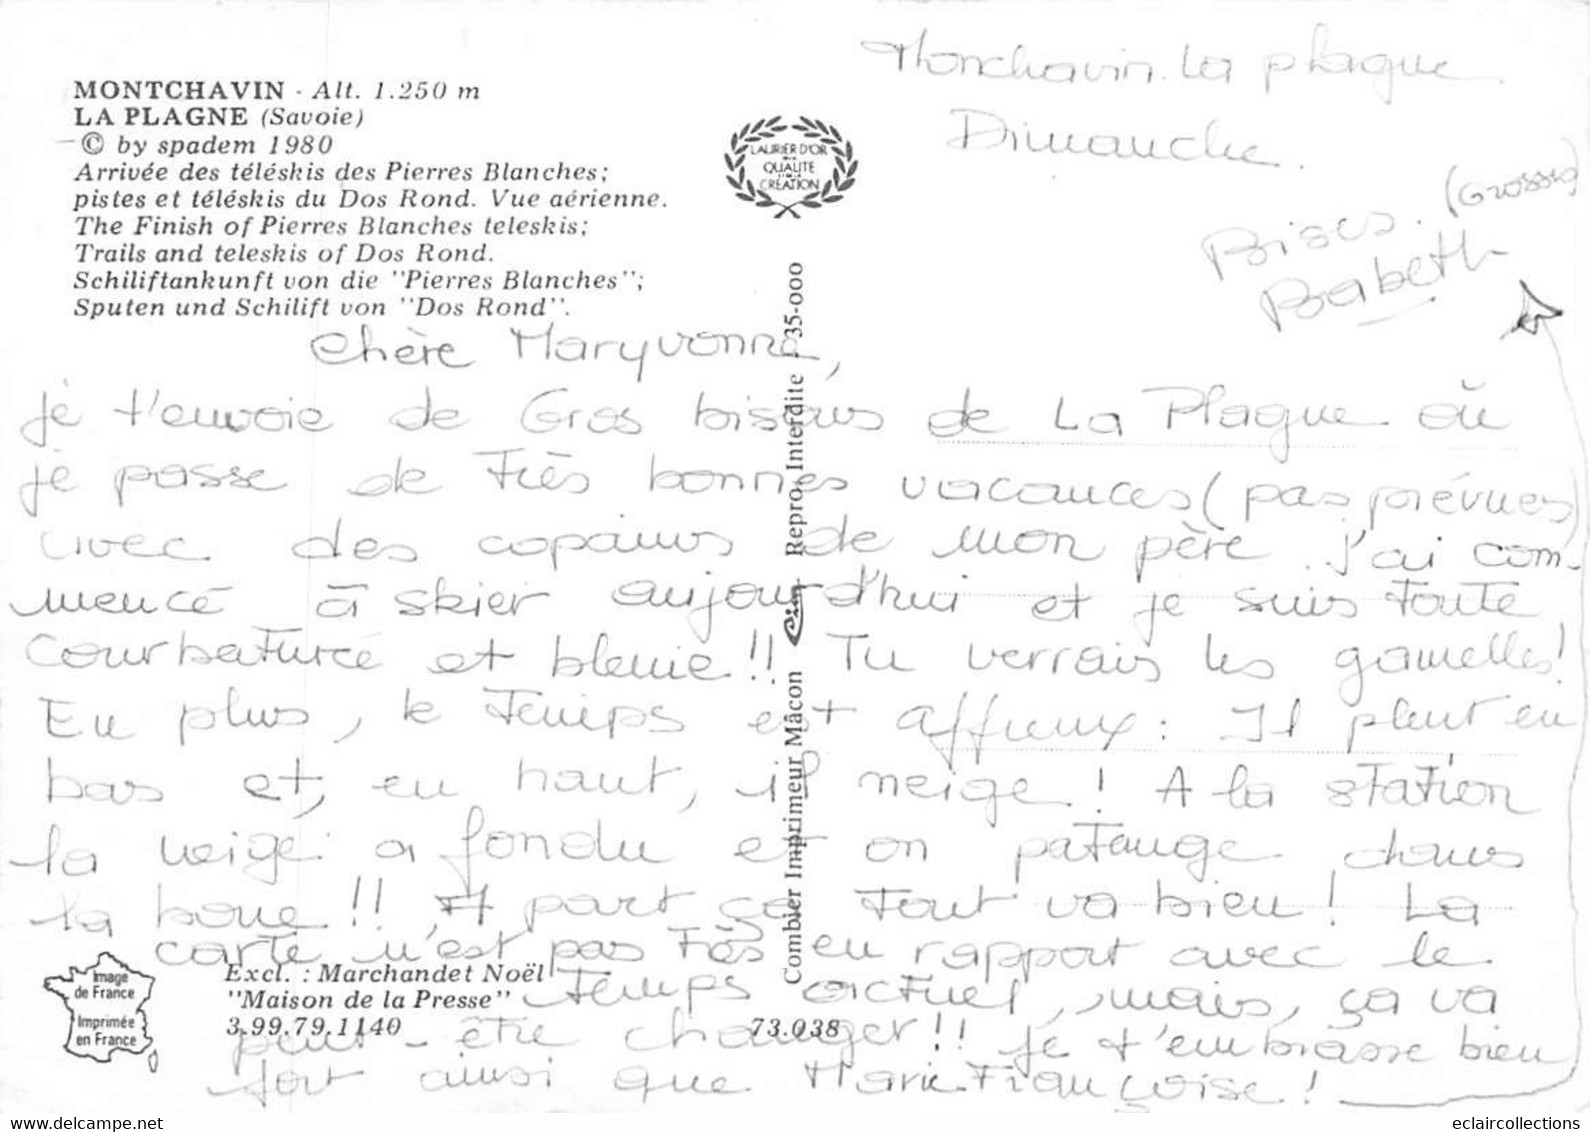 Monchavin. La plagne
Dimanche.
MONTCHAVIN - Alt. 1.250 m
LA PLAGNE (Savoie)
© by spadem 1980
Arrivée des téléskis des Pierres Blanches;
pistes et téléskis du Dos Rond. Vue aérienne.
The Finish of Pierres Blanches teleskis;
Trails and teleskis of Dos Rond.
Schiliftankunft von die "Pierres Blanches";
Sputen und Schilift von "Dos Rond".
LAURIER D'OR
DE LA
QUALITE
ET DE LA
CRÉATION
Bises. (Grosses)
Babeth
Chère Maryvonne,
je t'envoie de Gros bisous de La Plagne où
je passe de très bonnes vacances (pas prévues)
avec des copains de mon père. J'ai com-
mencé à skier aujourd'hui et je suis toute
courbaturée et bleuie!! Tu verrais les gamelles!
En plus, le temps est affreux : Il pleut en
bas et, en haut, il neige! A la station
la neige a fondu et on patauge dans
la boue!! A part ça tout va bien! La
carte n'est pas très en rapport avec le
temps actuel, mais, ça va
peut-être changer!! Je t'embrasse bien
fort ainsi que Marie Françoise!
Combier Imprimeur Mâcon
Cim
Repro. Interdite
35-000
Image
de France
Imprimée
en France
Excl. : Marchandet Noël
"Maison de la Presse"
3.99.79.1140
73.038
www.delcampe.net
eclaircollections